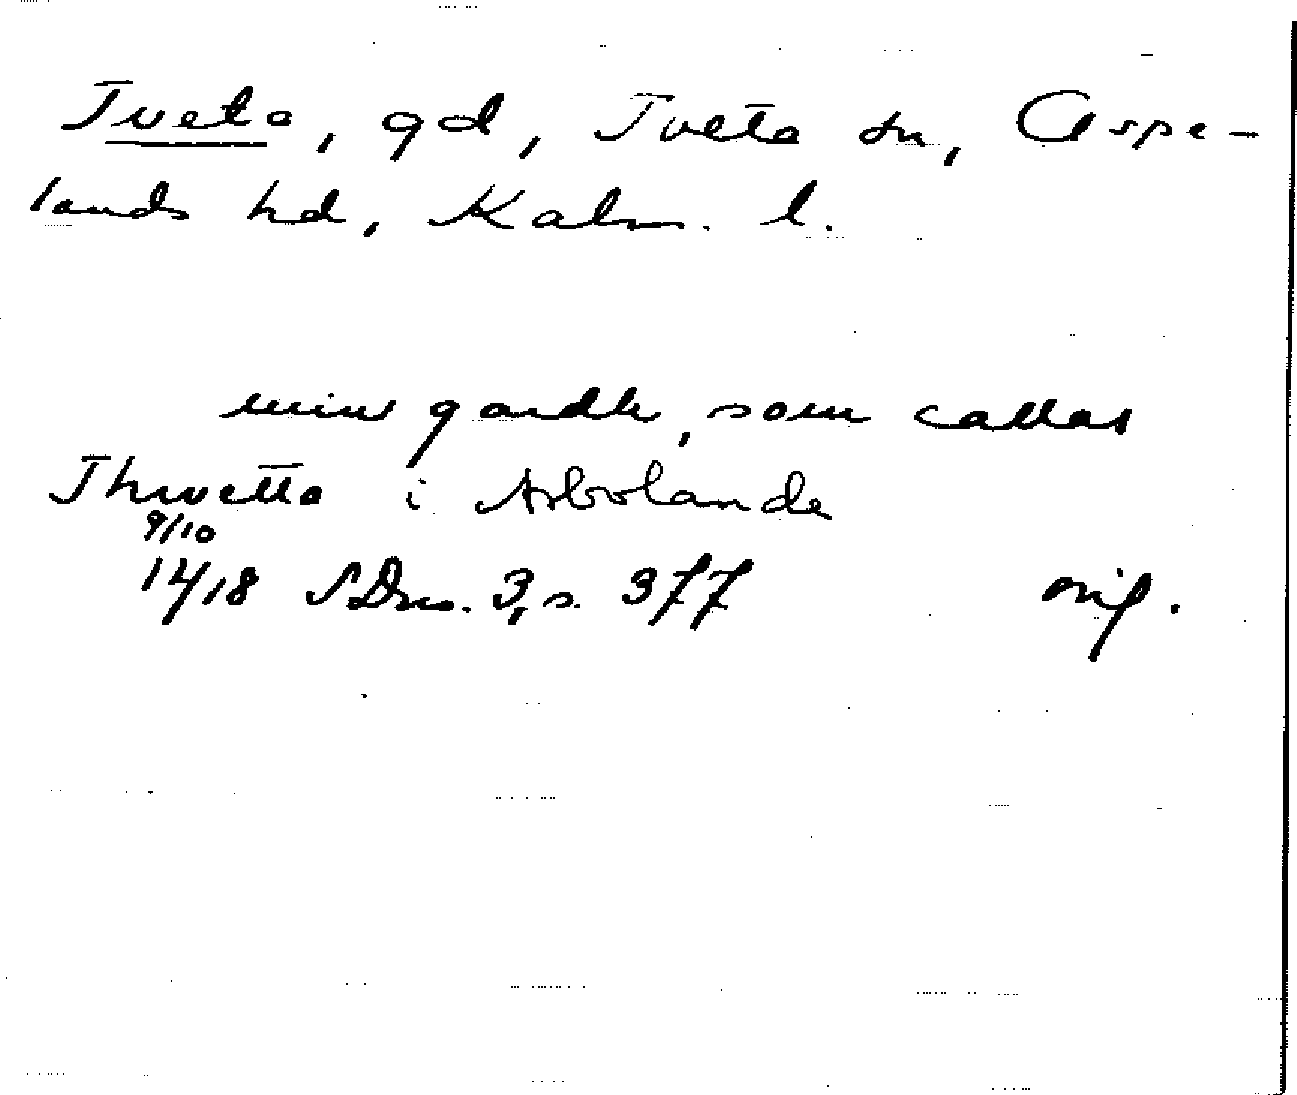 Tveta, gd, Tveta sn, Aspe-
lands hd, Kalm. l.
min gardh, som callas
Thwetta i Asbolande
9/10
1418 SDns. 3, s. 377 orig.